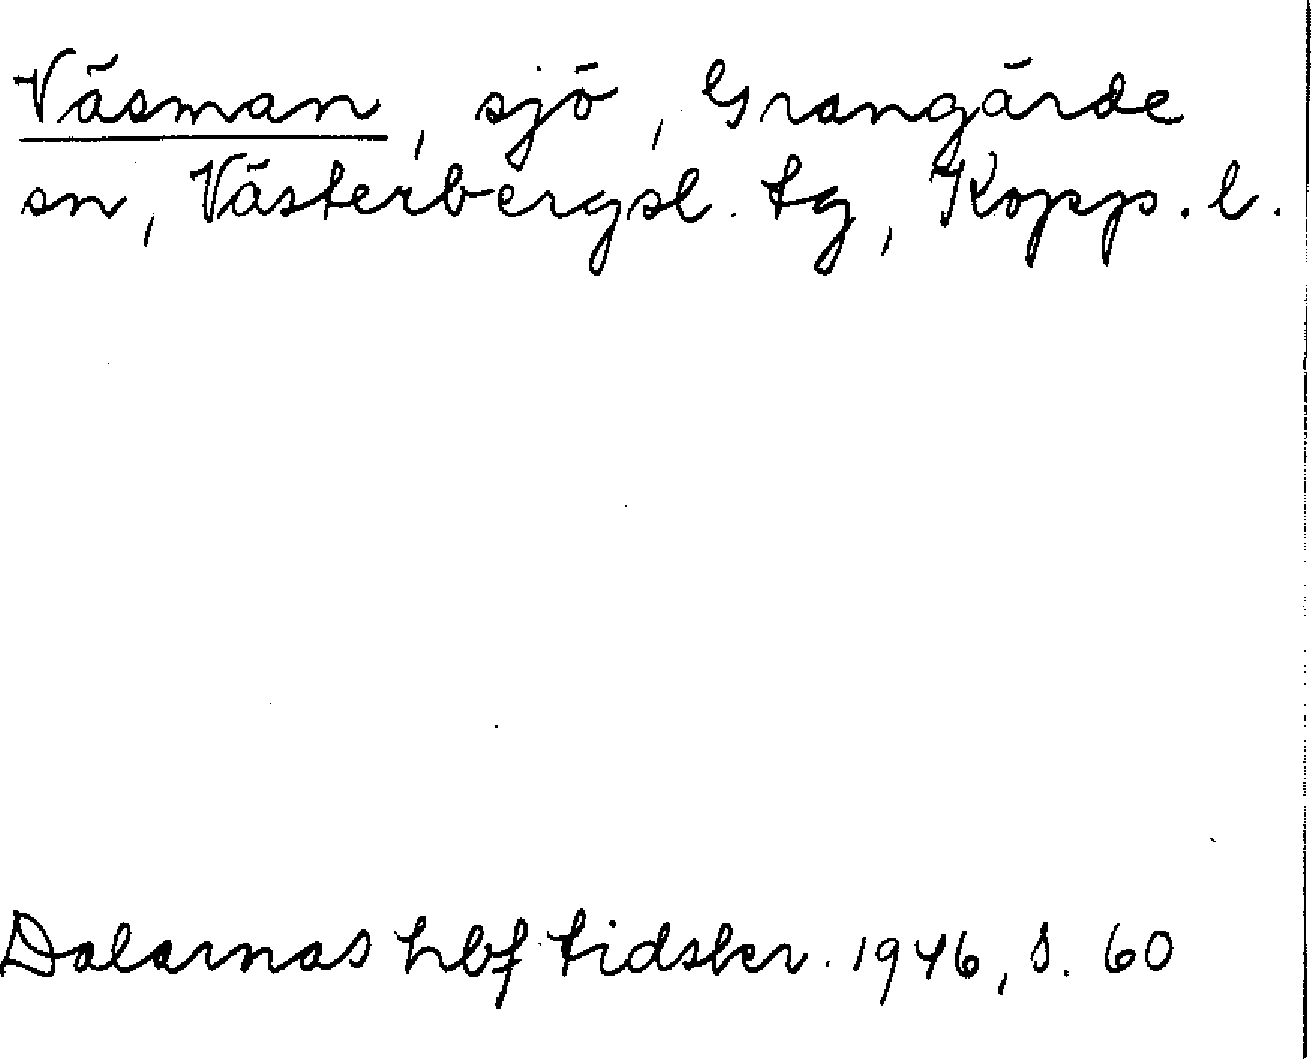 Väsman, sjö, Grangärde
sn, Västerbergsl. tg, Kopp. l.
Dalarnas hbf tidskr. 1946, s. 60